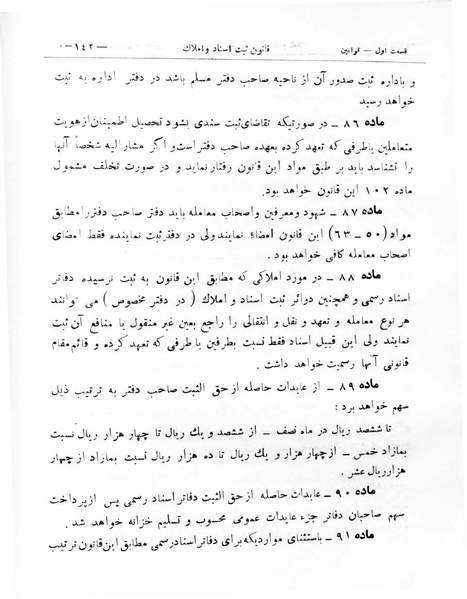 قسمت اول — قوانین    قانون ثبت اسناد و املاك    — ۱۴۲ —
و باداره ثبت صدور آن از ناحیه صاحب دفتر مسلم باشد در دفتر اداره به ثبت
خواهد رسید
ماده ۸۶ – در صورتیکه تقاضای ثبت سندی بشود تحصیل اطمینان از هویت
متعاملین یاطرفی که تعهد کرده بعهده صاحب دفتر است و اگر مشار الیه شخصاً آنها
را نشناسد باید بر طبق مواد این قانون رفتار نماید و در صورت تخلف مشمول
ماده ۱۰۲ این قانون خواهد بود.
ماده ۸۷ – شهود ومعرفین واصحاب معامله باید دفتر صاحب دفتررا مطابق
مواد (۵۰ – ۶۳) این قانون امضاء نمایند ولی در دفتر ثبت نماینده فقط امضای
اصحاب معامله کافی خواهد بود.
ماده ۸۸ – در مورد املاکی که مطابق این قانون به ثبت نرسیده دفاتر
اسناد رسمی و همچنین دوائر ثبت اسناد و املاك (در دفتر مخصوص) می توانند
هر نوع معامله و تعهد و نقل و انتقالی را راجع بعین غیر منقول یا منافع آن ثبت
نمایند ولی این قبیل اسناد فقط نسبت بطرفین یا طرفی که تعهد کرده و قائم مقام
قانونی آنها رسمیت خواهد داشت .
ماده ۸۹ – از عایدات حاصله از حق الثبت صاحب دفتر به ترتیب ذیل
سهم خواهد برد :
تا ششصد ریال در ماه نصف – از ششصد و یك ریال تا چهار هزار ریال نسبت
بمازاد خمس – از چهار هزار و یك ریال تا ده هزار ریال نسبت بمازاد از چهار
هزار ریال عشر .
ماده ۹۰ – عایدات حاصله از حق الثبت دفاتر اسناد رسمی پس از پرداخت
سهم صاحبان دفاتر جزء عایدات عمومی محسوب و تسلیم خزانه خواهد شد .
ماده ۹۱ – باستثنای مواردیکه برای دفاتر اسناد رسمی مطابق این قانون ترتیب